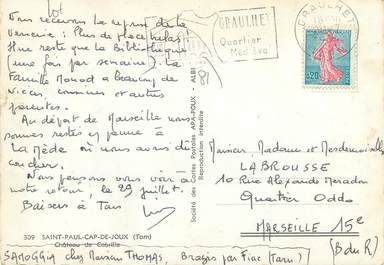 Nous recevons la reprise de la
Vannerie : Plus de place hélas !
Il ne reste que la Bibliothèque
(une fois par semaine). La
Famille Monod a beaucoup de
vieux, cousines et autres
parentes.
Au départ de Marseille nous
sommes restés en panne à
La Mède où nous avons dû
coucher.
Nous pensons vous voir à
notre retour, le 29 juillet.
Baisers à Tous
309 SAINT-PAUL-CAP-DE-JOUX (Tarn)
Château de
SAMOGGIA chez Monsieur THOMAS, Brazis par Fiac (Tarn)
Société des Cartes Postales APA-POUX - ALBI
Reproduction interdite
81
GRAULHET
Quartier
Médiéval
GRAULHET
0,20
Monsieur Madame et Mesdemoiselles
LABROUSSE
10 Rue Alexandre
Quartier Oddo
MARSEILLE 15e
(B du R)